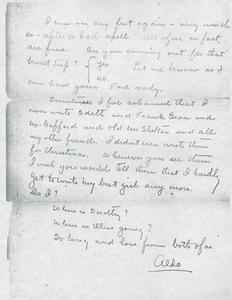 I am on my feet again - very much
so - after a bad spell. All of us, in fact,
are fine. Are you coming out for that
trout trip? { Yes Let me know so I
no.
can have your Ford ready.
Sometimes I feel ashamed that I
never write Edith and Frank Bean and
Mr. Gifford and old Mr Shelton and all
my other friends. I didn't even write them
for Christmas. Whenever you see them
I wish you would tell them that I hardly
get to write my best girl any more.
Do I?
Where is Dorothy?
When is Ollie going?
So long and love from both of us
Aldo